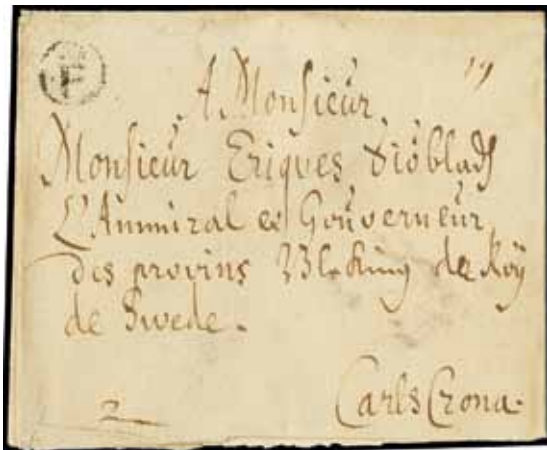 F
A Monsieur
Monsieur Eriques Siöblads
L'Ammiral et Gouverneur
des provins Bleking de Roÿ
de Swede.
Carls Crona.
2